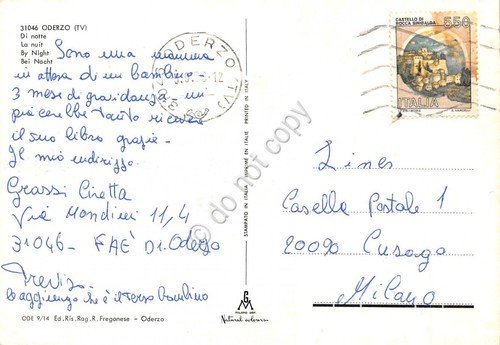 31046 ODERZO (TV)
Di notte
La nuit
By Night
Bei Nacht
Sono una mamma
in attesa di un bambino
3 mese di gravidanza, mi
piacerebbe tanto ricevere
il suo libro grazie -
Il mio indirizzo
Grassi Piretta
Via Mondini 11,4
31046 - FAÈ DI Oderzo
Treviso
aggiungo che è il terzo bambino
ODE 9/14 Ed. Ris. Rag. R. Fregonese - Oderzo
ODERZO (TV)
STAMPATO IN ITALIA PRINTED IN ITALY
MILANO
Natural colours
CASTELLO DI
ROCCA SINIBALDA
550
ITALIA
Lines
Casella Postale 1
20090 Cusago
Milano
do not copy